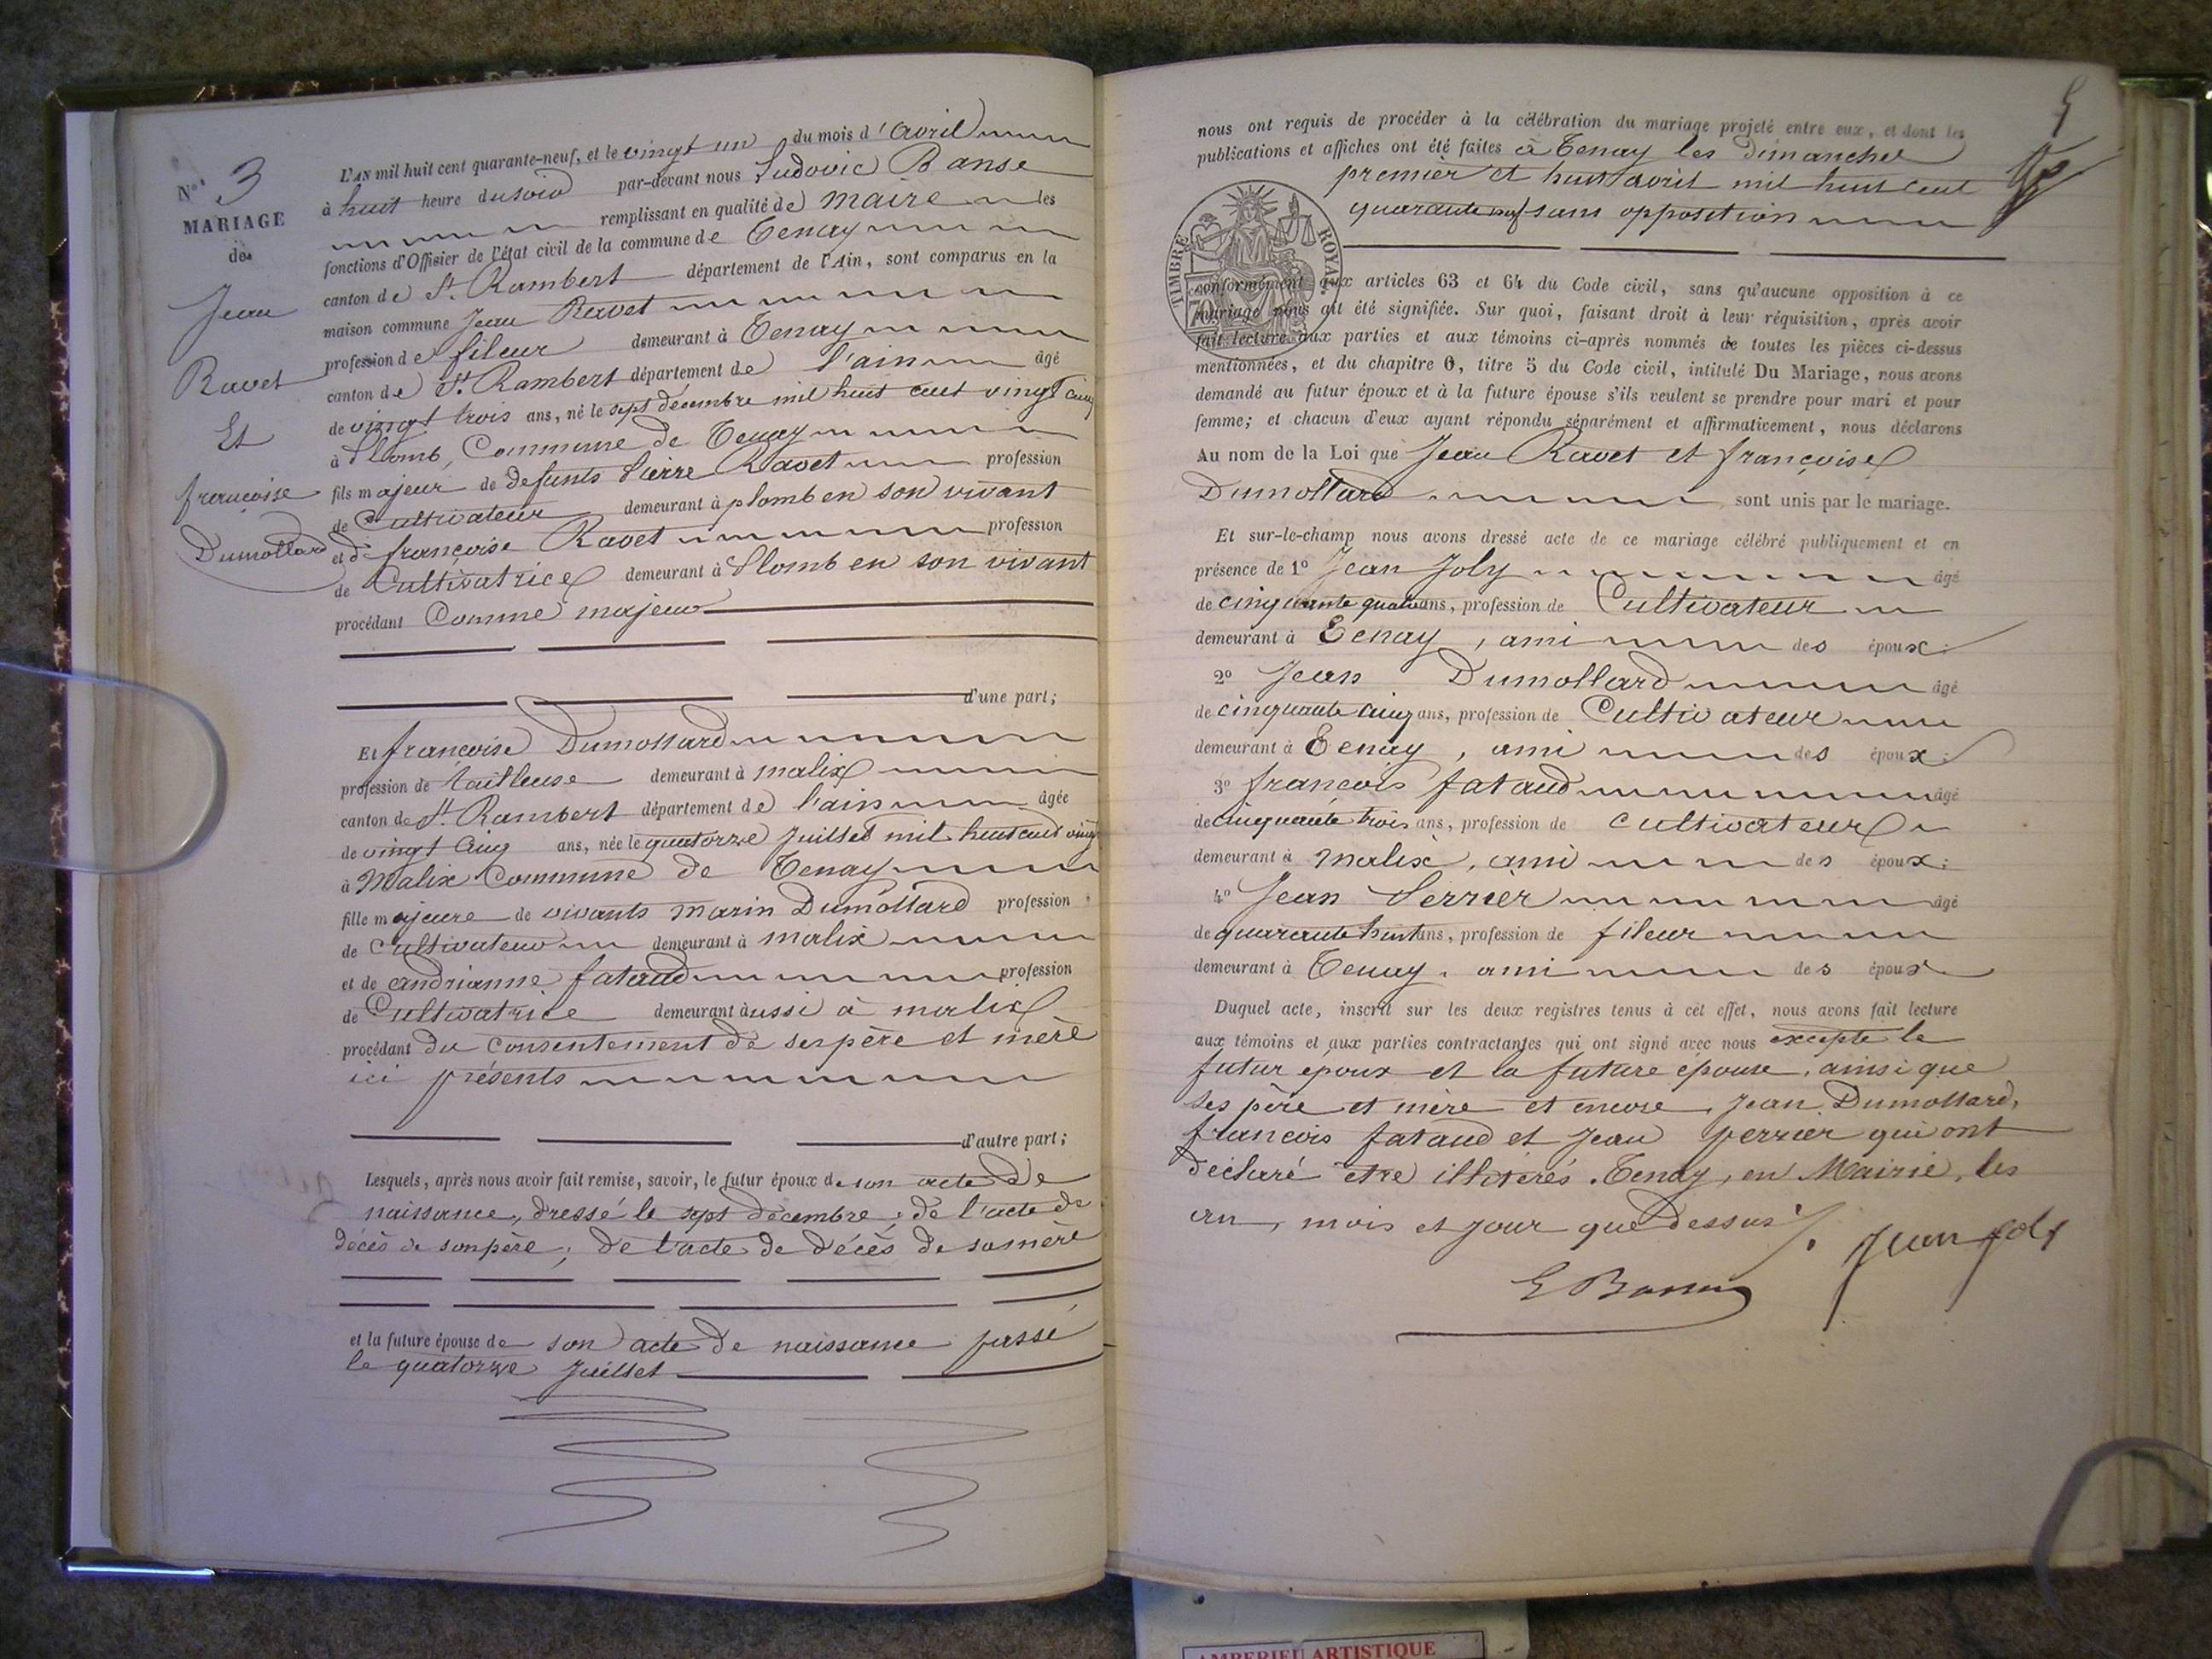 N° 3
MARIAGE
de
Jean
Ravet
Et
françoise
Dumollard
L'AN mil huit cent quarante-neuf, et le vingt un du mois d'avril
à huit heure du soir par-devant nous Ludovic Banse
remplissant en qualité de maire les
fonctions d'Offisier de l'état civil de la commune de Tenay
canton de St. Rambert département de l'Ain, sont comparus en la
maison commune Jean Ravet
profession de fileur demeurant à Tenay
canton de St Rambert département de l'ain âgé
de vingt trois ans, né le sept décembre mil huit cent vingt cinq
à Plomb, Commune de Tenay
fils majeur de defunts Pierre Ravet profession
de Cultivateur demeurant à plomb en son vivant
et de françoise Ravet profession
de Cultivatrice demeurant à Plomb en son vivant
procédant Comme majeur
d'une part;
Et françoise Dumollard
profession de tailleuse demeurant à malix
canton de St. Rambert département de l'ain âgée
de vingt cinq ans, née le quatorze Juillet mil huit cent vingt
à Malix Commune de Tenay
fille majeure de vivants marin Dumollard profession
de Cultivateur demeurant à malix
et de andrianne fataud profession
de Cultivatrice demeurant aussi à malix
procédant du Consentement de ses père et mère
ici présents
d'autre part;
Lesquels, après nous avoir fait remise, savoir, le futur époux de son acte de
naissance, dressé le sept décembre; de l'acte de
décès de son père; de l'acte de décès de sa mère
et la future épouse de son acte de naissance passé
le quatorze Juillet
5
nous ont requis de procéder à la célébration du mariage projeté entre eux, et dont les
publications et affiches ont été faites à Tenay les dimanches
premier et huit avril mil huit cent
quarante neuf sans opposition
TIMBRE ROYAL
70
conformément aux articles 63 et 64 du Code civil, sans qu'aucune opposition à ce
mariage nous ait été signifiée. Sur quoi, faisant droit à leur réquisition, après avoir
fait lecture aux parties et aux témoins ci-après nommés de toutes les pièces ci-dessus
mentionnées, et du chapitre 6, titre 5 du Code civil, intitulé Du Mariage, nous avons
demandé au futur époux et à la future épouse s'ils veulent se prendre pour mari et pour
femme; et chacun d'eux ayant répondu séparément et affirmativement, nous déclarons
Au nom de la Loi que Jean Ravet et françoise
Dumollard sont unis par le mariage.
Et sur-le-champ nous avons dressé acte de ce mariage célébré publiquement et en
présence de 1° Jean Joly âgé
de cinquante quatre ans, profession de Cultivateur
demeurant à Tenay, ami des époux.
2° Jean Dumollard âgé
de cinquante cinq ans, profession de Cultivateur
demeurant à Tenay, ami des époux.
3° françois fataud âgé
de cinquante trois ans, profession de cultivateur
demeurant à malix, ami des époux.
4° Jean Perrier âgé
de quarante huit ans, profession de fileur
demeurant à Tenay, ami des époux.
Duquel acte, inscrit sur les deux registres tenus à cet effet, nous avons fait lecture
aux témoins et aux parties contractantes qui ont signé avec nous excepté le
futur époux et la future épouse, ainsi que
ses père et mère et encore Jean Dumollard,
françois fataud et Jean perrier qui ont
déclaré etre illiterés. Tenay, en Mairie, les
an, mois et jour que dessus.
Jean Joly
AMBERIEU ARTISTIQUE